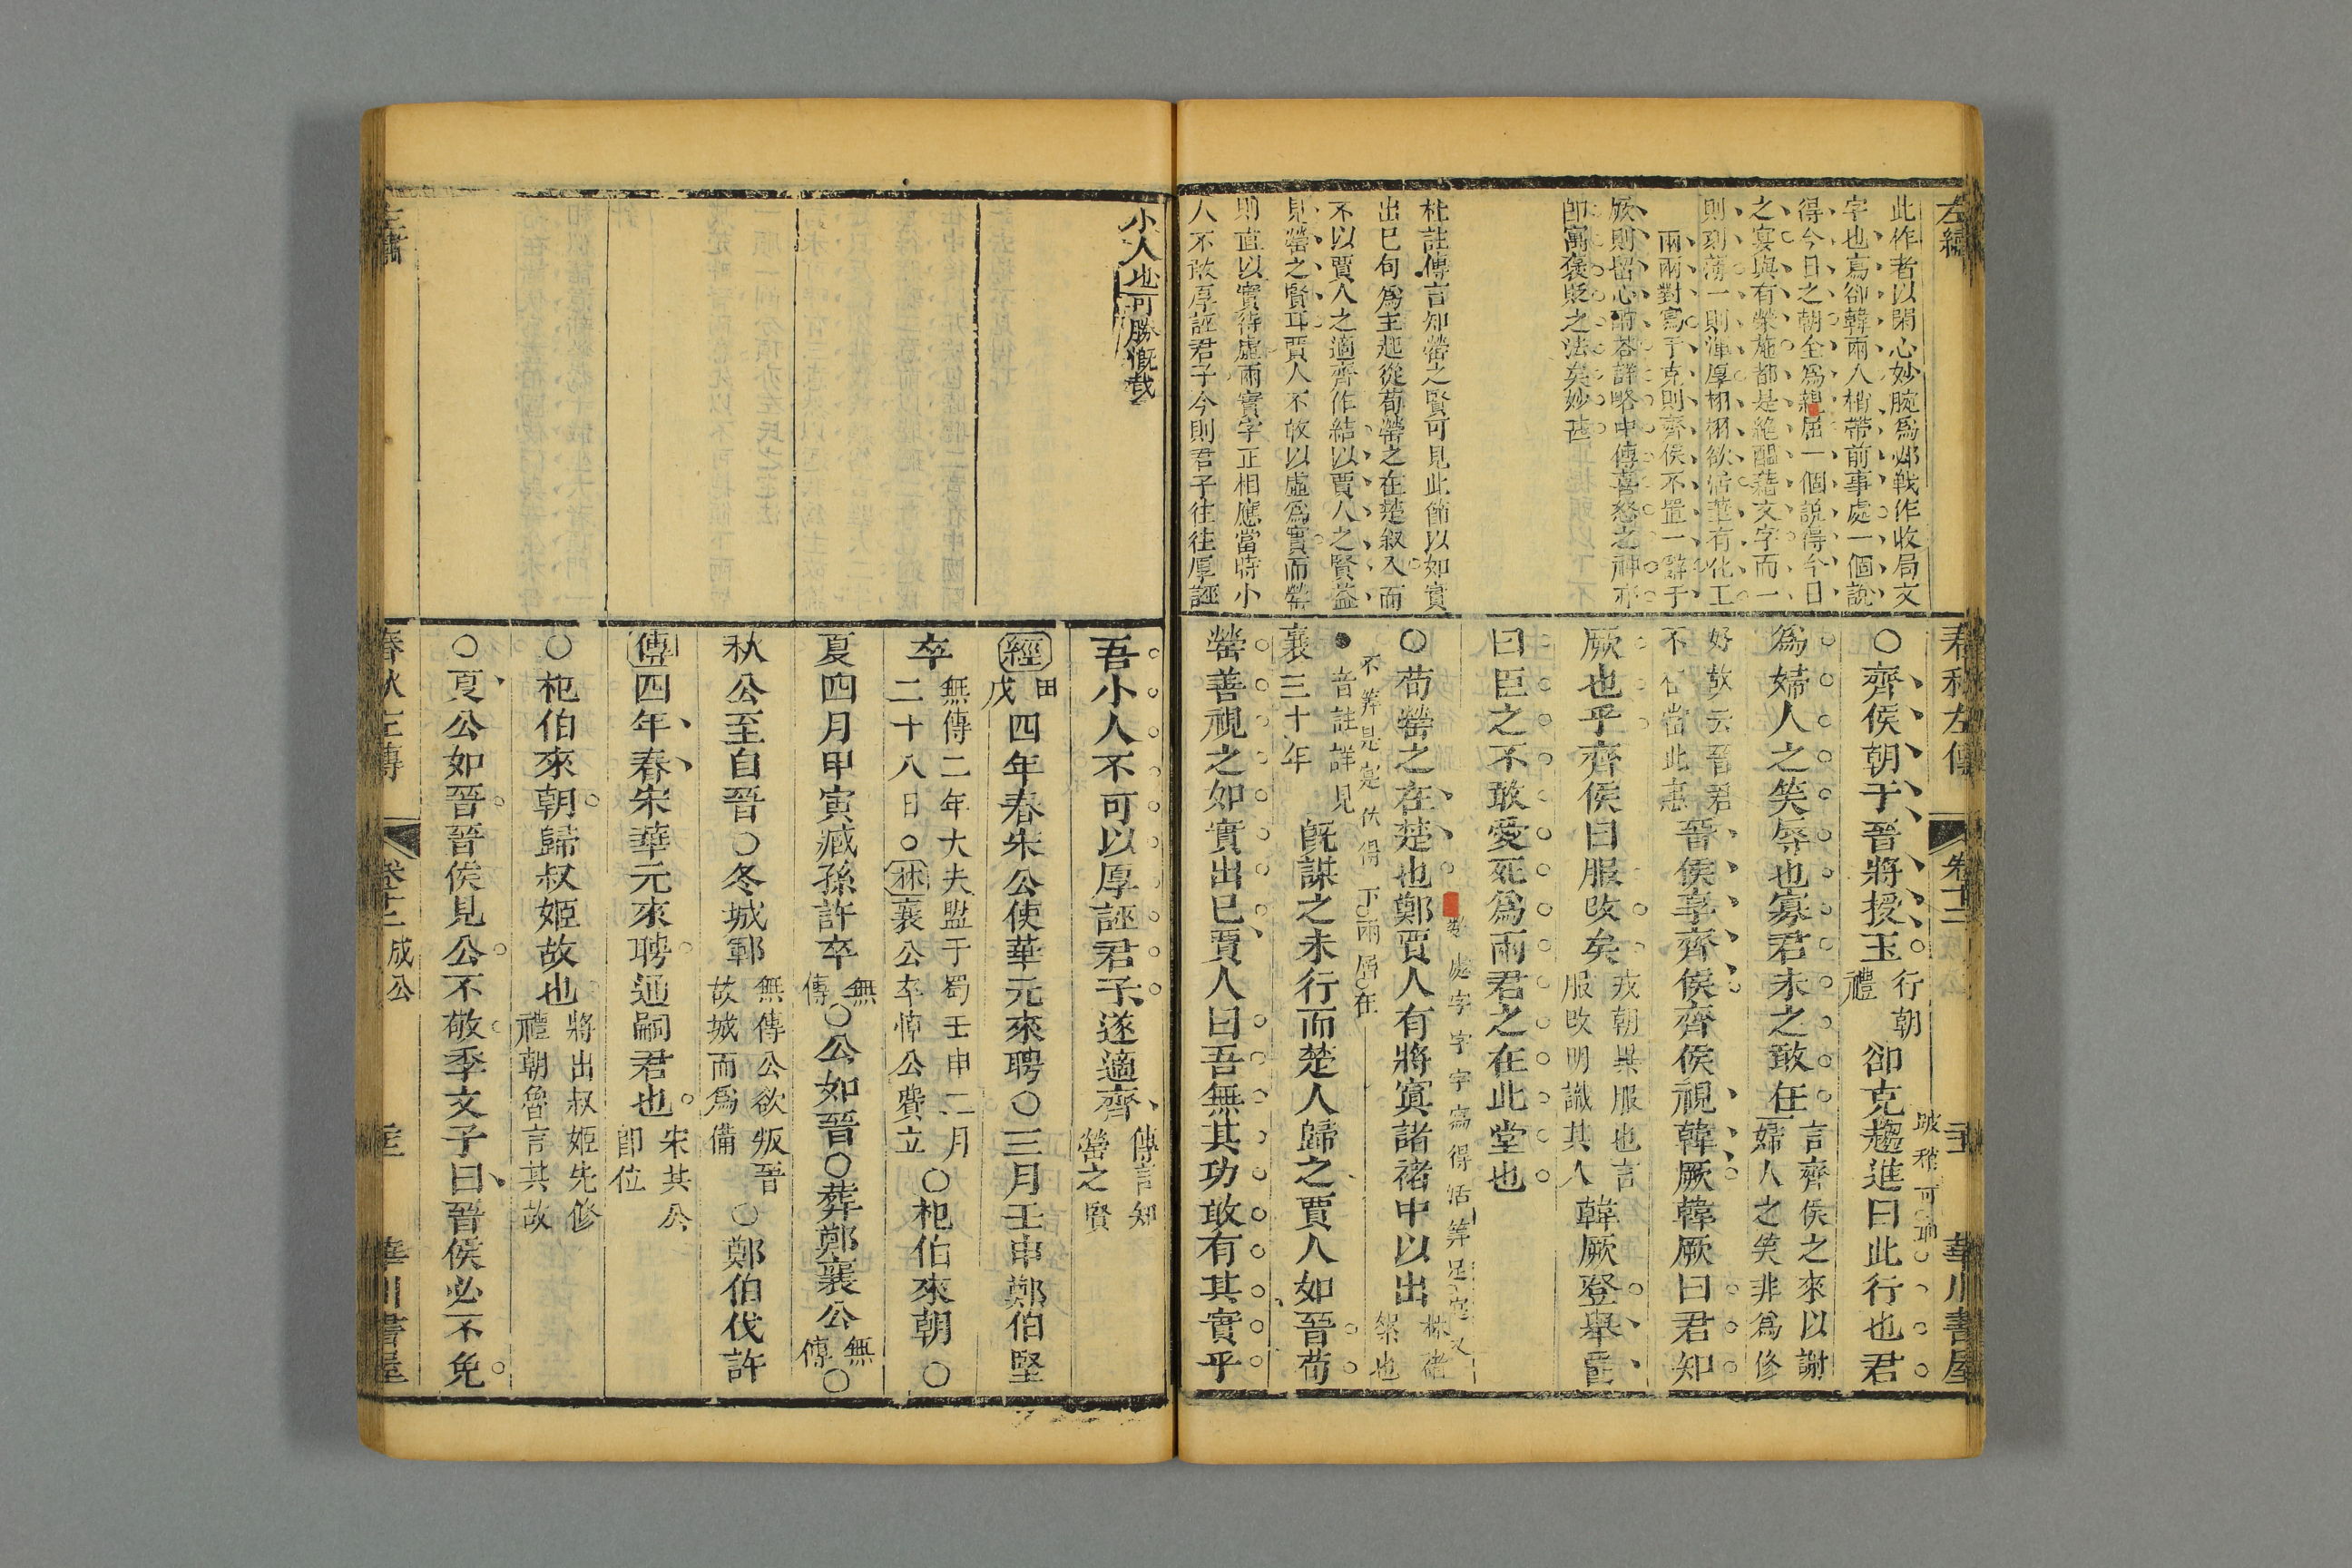 左繡
此作者以閑心妙腕爲鄢戰作收局文
字也寫卻韓兩人相帶前事處一個說
得今日之朝全爲親屈一個説得今日
之宴與有榮施都是絶醖藉文字而一
則刻薄一則渾厚栩栩欲活筆有化工
兩兩對寫于克則齊侯不置一辭于
厥則留心前若詳略中傳喜怒之神亦
即寓褒貶之法矣妙甚
杜註傳言知罃之賢可見此節以如實
出已句爲主起從荀罃之在楚叙入而
不以賈人之適齊作結以賈人之賢益
見罃之賢耳賈人不敢以虛爲實而罃
則直以實待虛兩實字正相應當時小
人不敢厚誣君子今則君子往往厚誣
春秋左傳 卷十二 華川書屋
○齊侯朝于晉將授玉行朝禮卻克趨進曰此行也君
跛稍可
爲婦人之笑辱也寡君未之敢任言齊侯之來以謝婦人之笑非爲修
好故云晉君不任當此惠晉侯享齊侯齊侯視韓厥韓厥曰君知
厥也乎齊侯曰服改矣戎朝異服也言服改明識其人韓厥登舉爵
曰臣之不敢愛死爲兩君之在此堂也
處字字字寫得活
○荀罃之在楚也鄭賈人有將寘諸褚中以出褚絮也
音註詳見襄三十年既謀之未行而楚人歸之賈人如晉荀
罃善視之如實出已賈人曰吾無其功敢有其實乎
小人也可勝慨哉
吾小人不可以厚誣君子遂適齊傳言知罃之賢
經甲戌四年春宋公使華元來聘○三月壬申鄭伯堅
卒無傳二年大夫盟于蜀壬申二月二十八日○林襄公卒悼公費立○杞伯來朝○
夏四月甲寅臧孫許卒無傳○公如晉○葬鄭襄公無傳○
秋公至自晉○冬城鄆無傳公欲叛晉故城而爲備○鄭伯伐許
傳四年春宋華元來聘通嗣君也宋共公即位
○杞伯來朝歸叔姬故也將出叔姬先修禮朝魯言其故
○夏公如晉晉侯見公不敬季文子曰晉侯必不免
左繡
春秋左傳 卷十二 成公 華川書屋